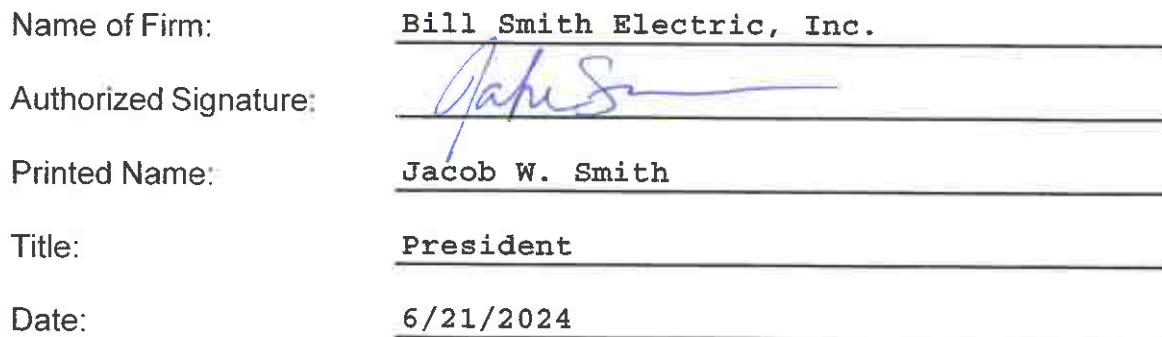 Name of Firm: Bill Smith Electric, Inc.
Authorized Signature: Jake S
Printed Name: Jacob W. Smith
Title: President
Date: 6/21/2024